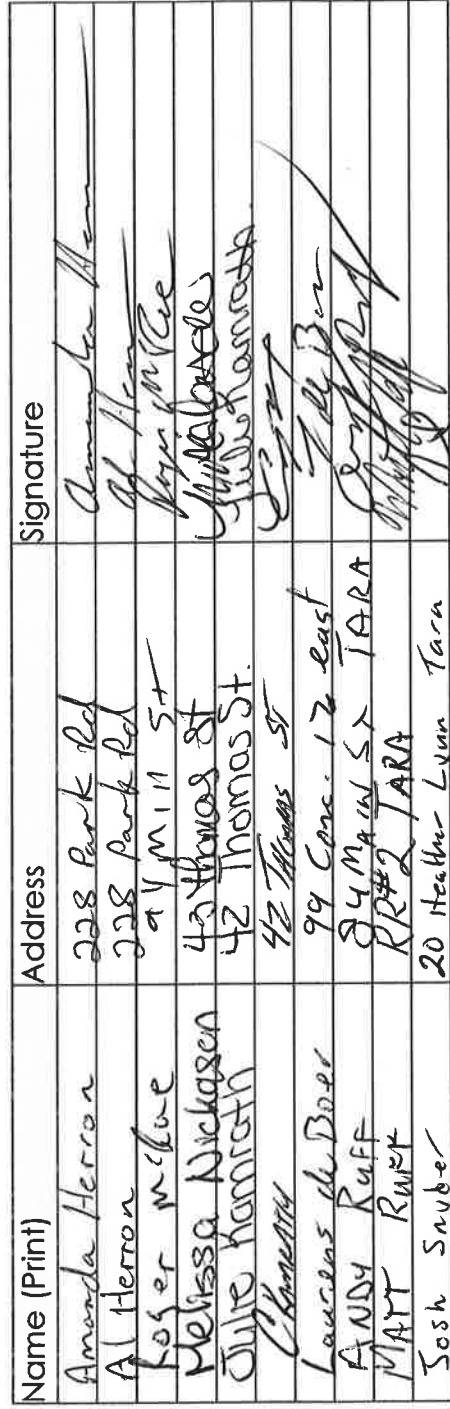 Name (Print) Address Signature
Amanda Herron 228 Park Rd Amanda
Al Herron 228 Park Rd Al
Roger 94 Mill St Roger
Melissa Nickasen 42 Thomas St
Julie Kamrath 42 Thomas St. Julie Kamrath.
42 Thomas ST
Laurens de Boer 99 Conc. 12 east L de Boer
ANDY RUFF 84 MAIN ST TARA
MATT RUFF RR#2 TARA
Josh Snyder 20 Heather Lynn Tara